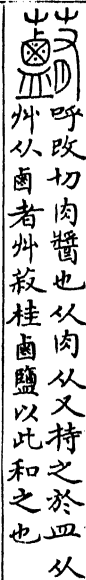 呼改切肉醬也从肉从又持之於皿从
艸从鹵者艸菽桂鹵鹽以此和之也